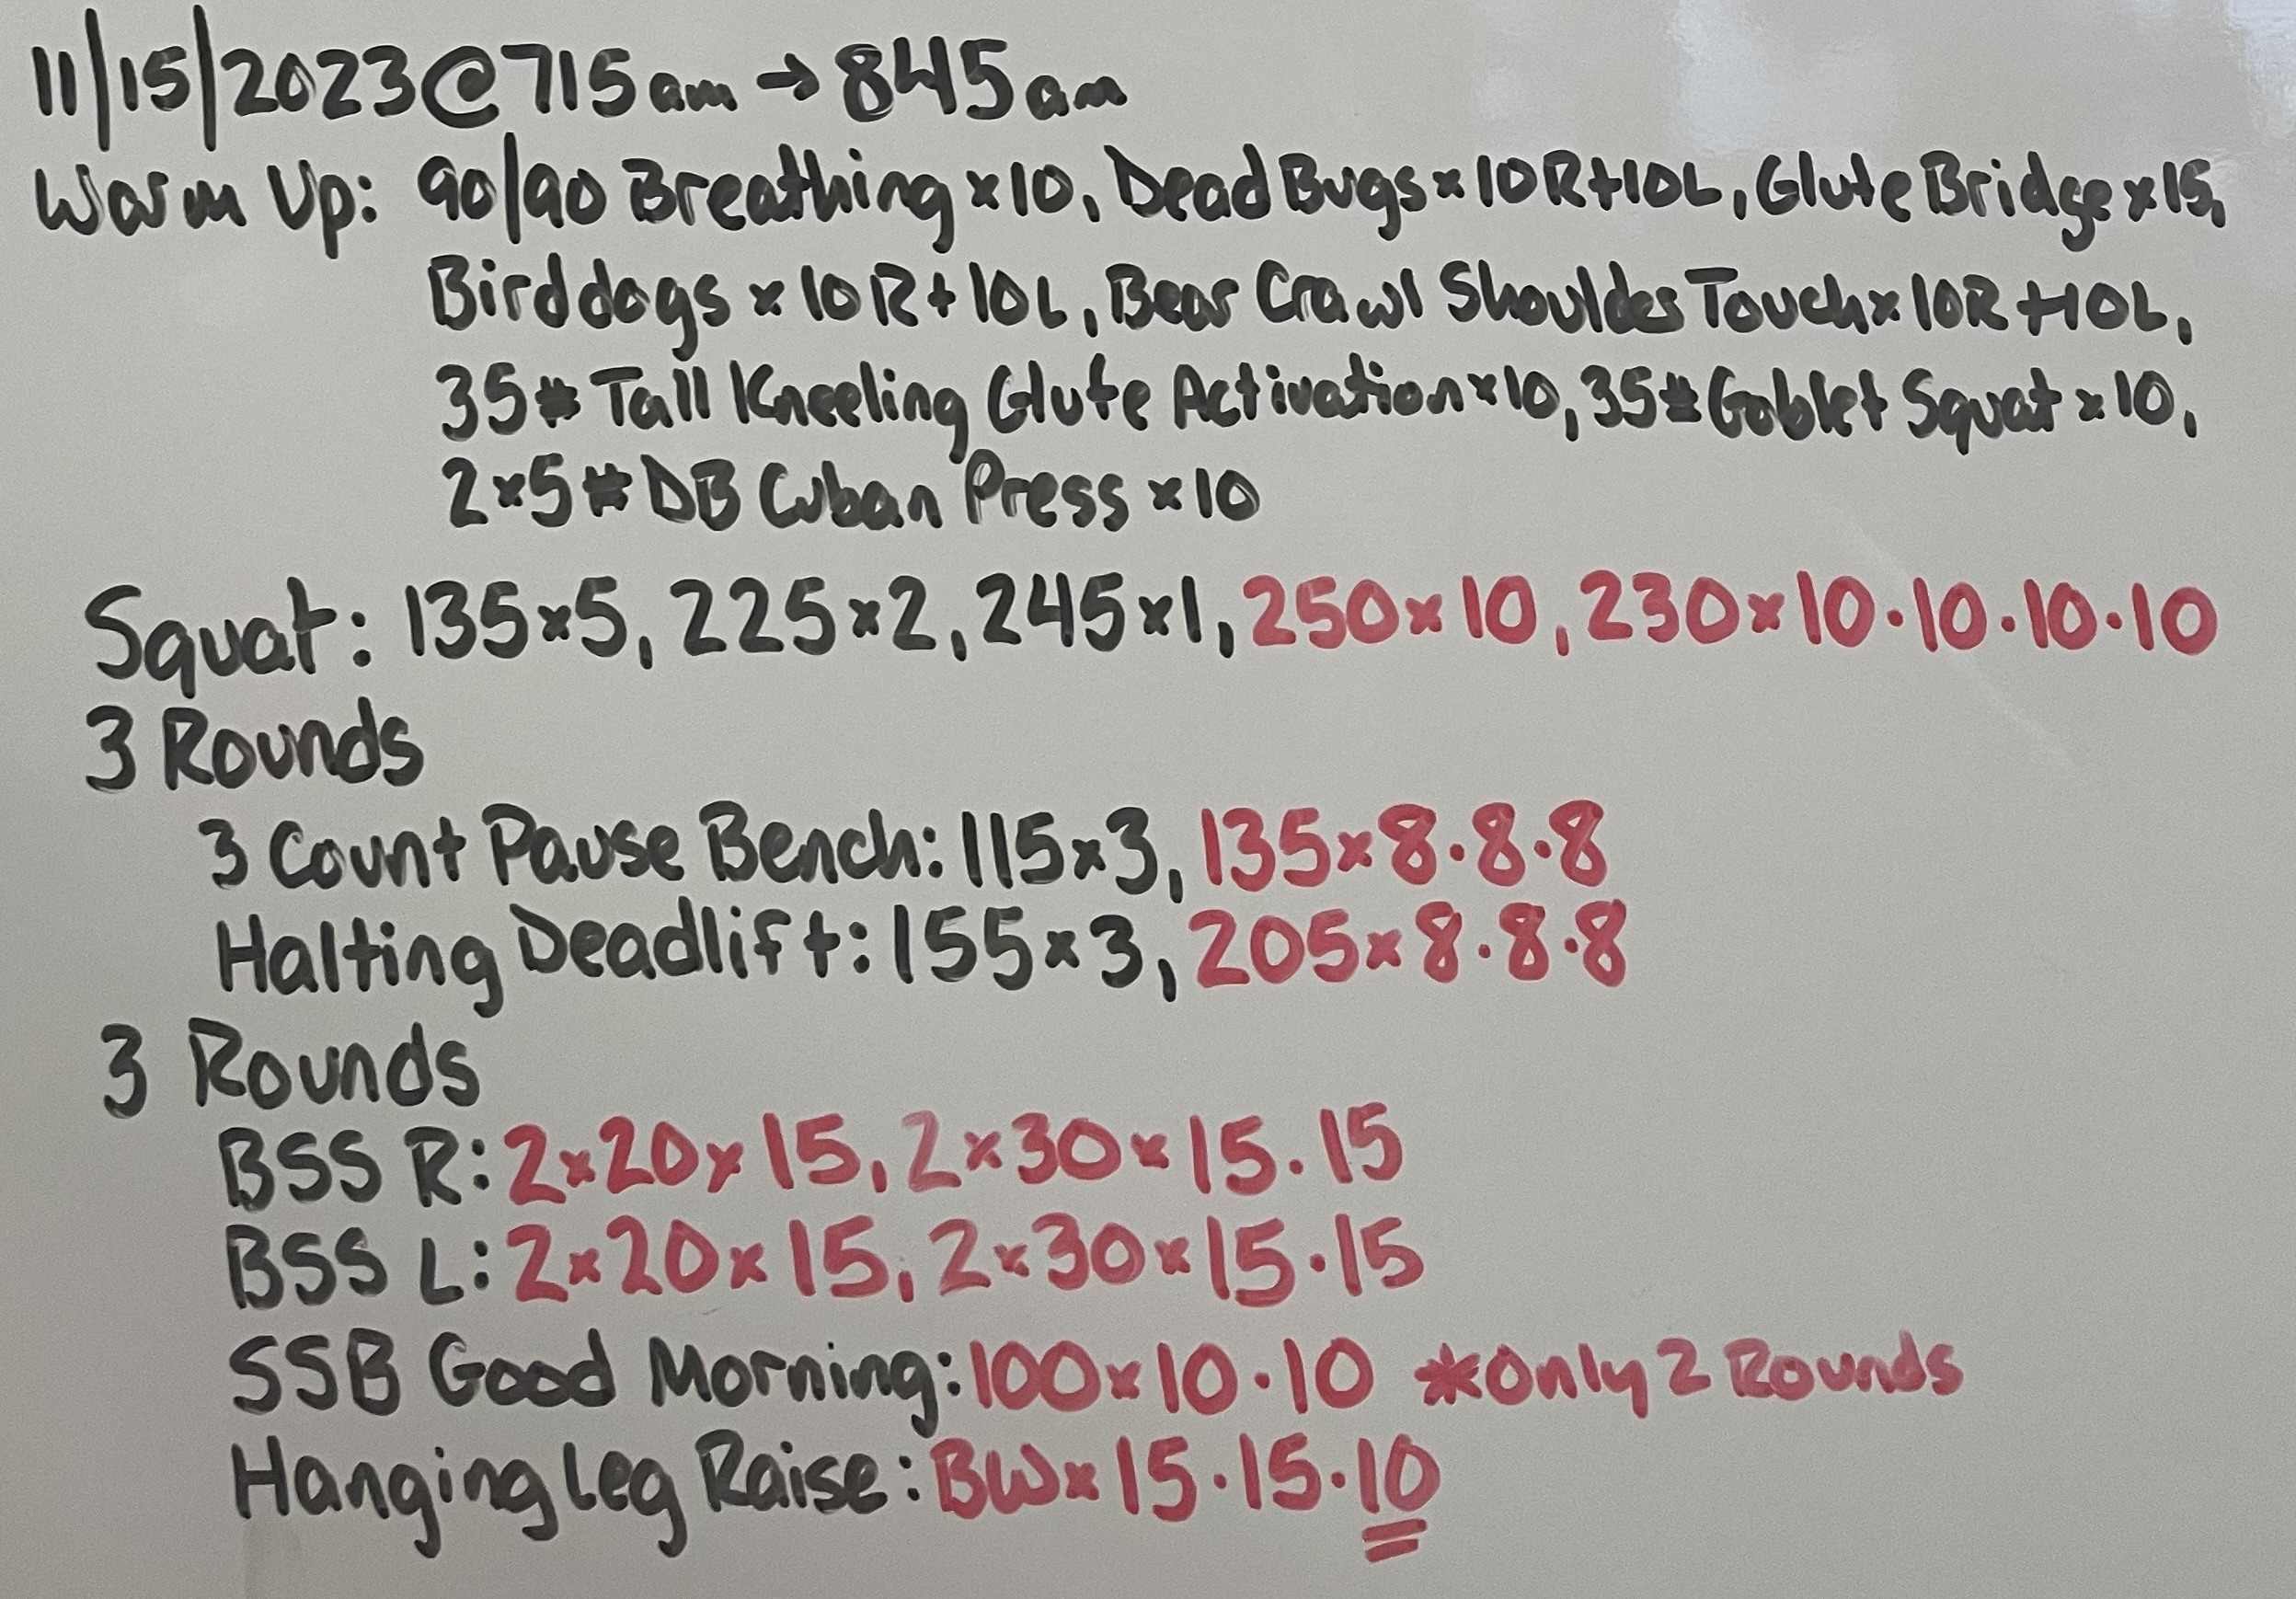 11/15/2023@715am→845am
Warm Up: 90/90 Breathing x10, Dead Bugs x 10R+10L, Glute Bridge x15,
Birddogs x 10R+10L, Bear Crawl Shoulder Touch x 10R+10L,
35# Tall Kneeling Glute Activation x10, 35# Goblet Squat x 10,
2x5# DB Cuban Press x10
Squat: 135x5, 225x2, 245x1, 250x10, 230x10·10·10·10
3 Rounds
3 Count Pause Bench: 115x3, 135x8·8·8
Halting Deadlift: 155x3, 205x8·8·8
3 Rounds
BSS R: 2x20x15, 2x30x15·15
BSS L: 2x20x15, 2x30x15·15
SSB Good Morning: 100x10·10 *Only 2 Rounds
Hanging Leg Raise: BWx15·15·10